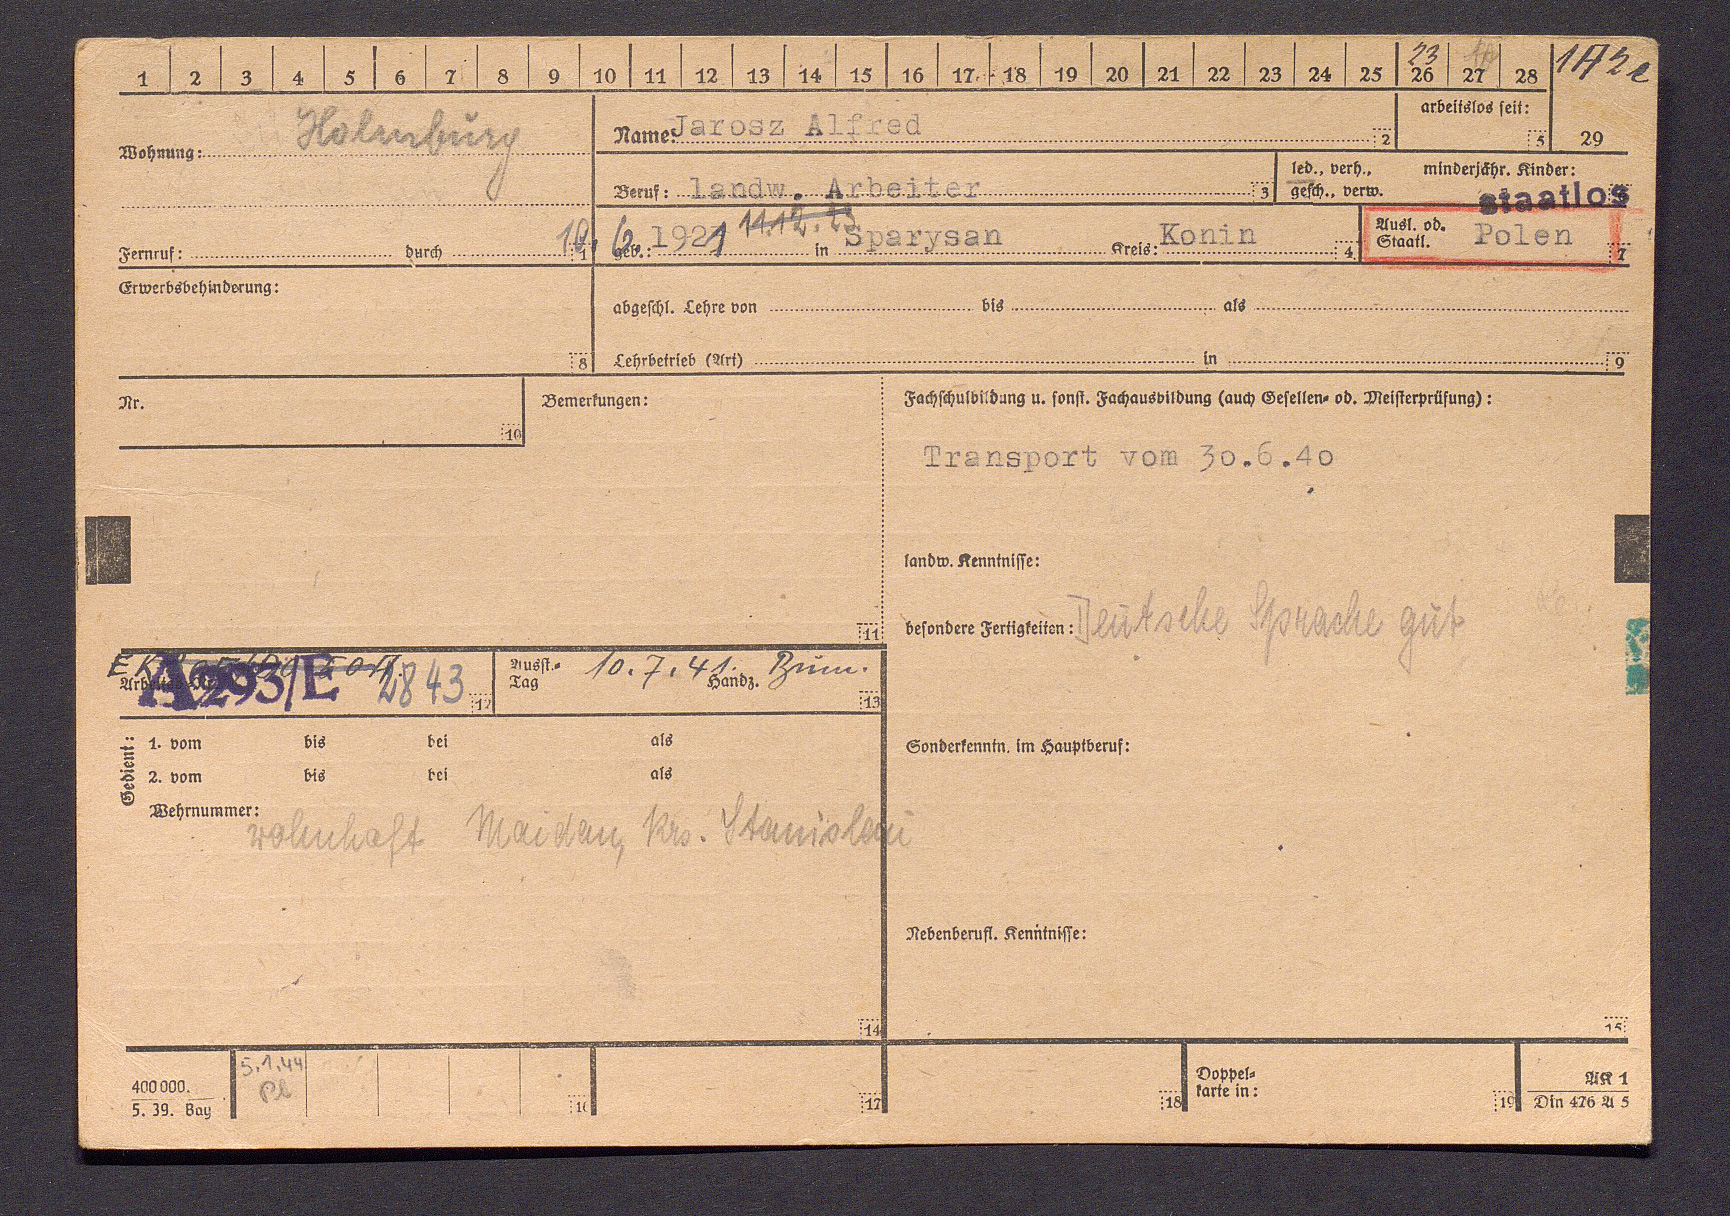 1 2 3 4 5 6 7 8 9 10 11 12 13 14 15 16 17 18 19 20 21 22 23 24 25 26 27 28
23
1A2e
Wohnung:
Name: Jarosz Alfred 2
arbeitslos seit: 5
29
Beruf: landw. Arbeiter 3
led., verh.,
gesch., verw.
minderjähr. Kinder:
staatlos
Fernruf: durch 1
10. 6. 1921 11.12.23
geb.: in Sparysan Kreis: Konin 4
Ausl. od.
Staatl. Polen 7
Erwerbsbehinderung:
8
abgeschl. Lehre von bis als
Lehrbetrieb (Art) in 9
Nr.
10
Bemerkungen:
11
Fachschulbildung u. sonst. Fachausbildung (auch Gesellen- od. Meisterprüfung):
Transport vom 30.6.40
landw. Kenntnisse:
besondere Fertigkeiten: Deutsche Sprache gut
A293/E 2843 12
Ausst.-
Tag 10.7.41. Handz. 13
Sonderkenntn. im Hauptberuf:
Gedient:
1. vom bis bei als
2. vom bis bei als
Wehrnummer:
wohnhaft Maidan, Krs. Stanislau
Nebenberufl. Kenntnisse:
14
15
400000.
5. 39. Bay
5.1.44
16
17
18
Doppel-
karte in:
19
AK 1
Din 476 A 5